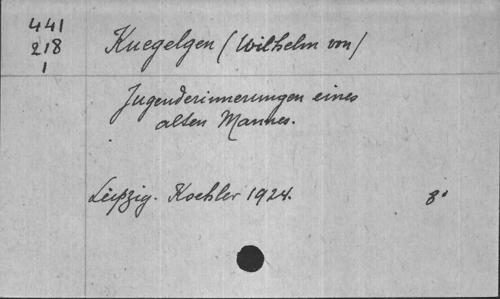 441
218
1
Kuegelgen (Wilhelm von)
Jugenderinnerungen eines
alten Mannes.
Leipzig. Koehler 1924. 8°